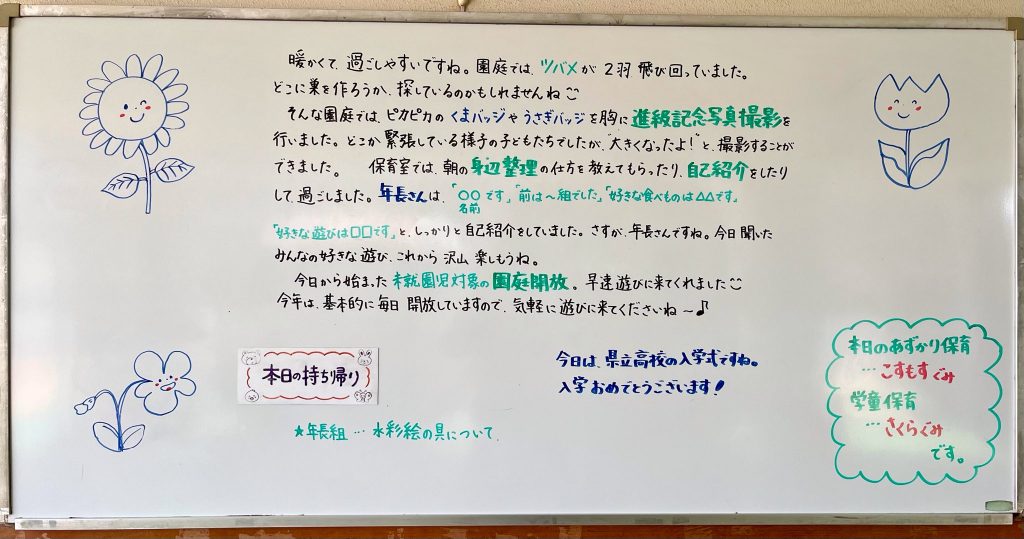 暖かくて、過ごしやすいですね。園庭では、ツバメが2羽飛び回っていました。
どこに巣を作ろうか、探しているのかもしれませんね
そんな園庭では、ピカピカのくまバッジやうさぎバッジを胸に進級記念写真撮影を
行いました。どこか緊張している様子の子どもたちでしたが、“大きくなったよ！”と、撮影することが
できました。 保育室では、朝の身辺整理の仕方を教えてもらったり、自己紹介をしたり
して、過ごしました。年長さんは、「○○です」「前は〜組でした」「好きな食べものは△△です」
名前
「好きな遊びは□□です」と、しっかりと自己紹介をしていました。さすが、年長さんですね。今日聞いた
みんなの好きな遊び、これから沢山楽しもうね。
今日から始まった未就園児対象の園庭開放。早速遊びに来てくれました
今年は、基本的に毎日開放していますので、気軽に遊びに来てくださいね〜♪
本日の持ち帰り
★年長組…水彩絵の具について
今日は、県立高校の入学式ですね。
入学おめでとうございます！
本日のあずかり保育
…こすもすぐみ
学童保育
…さくらぐみ
です。